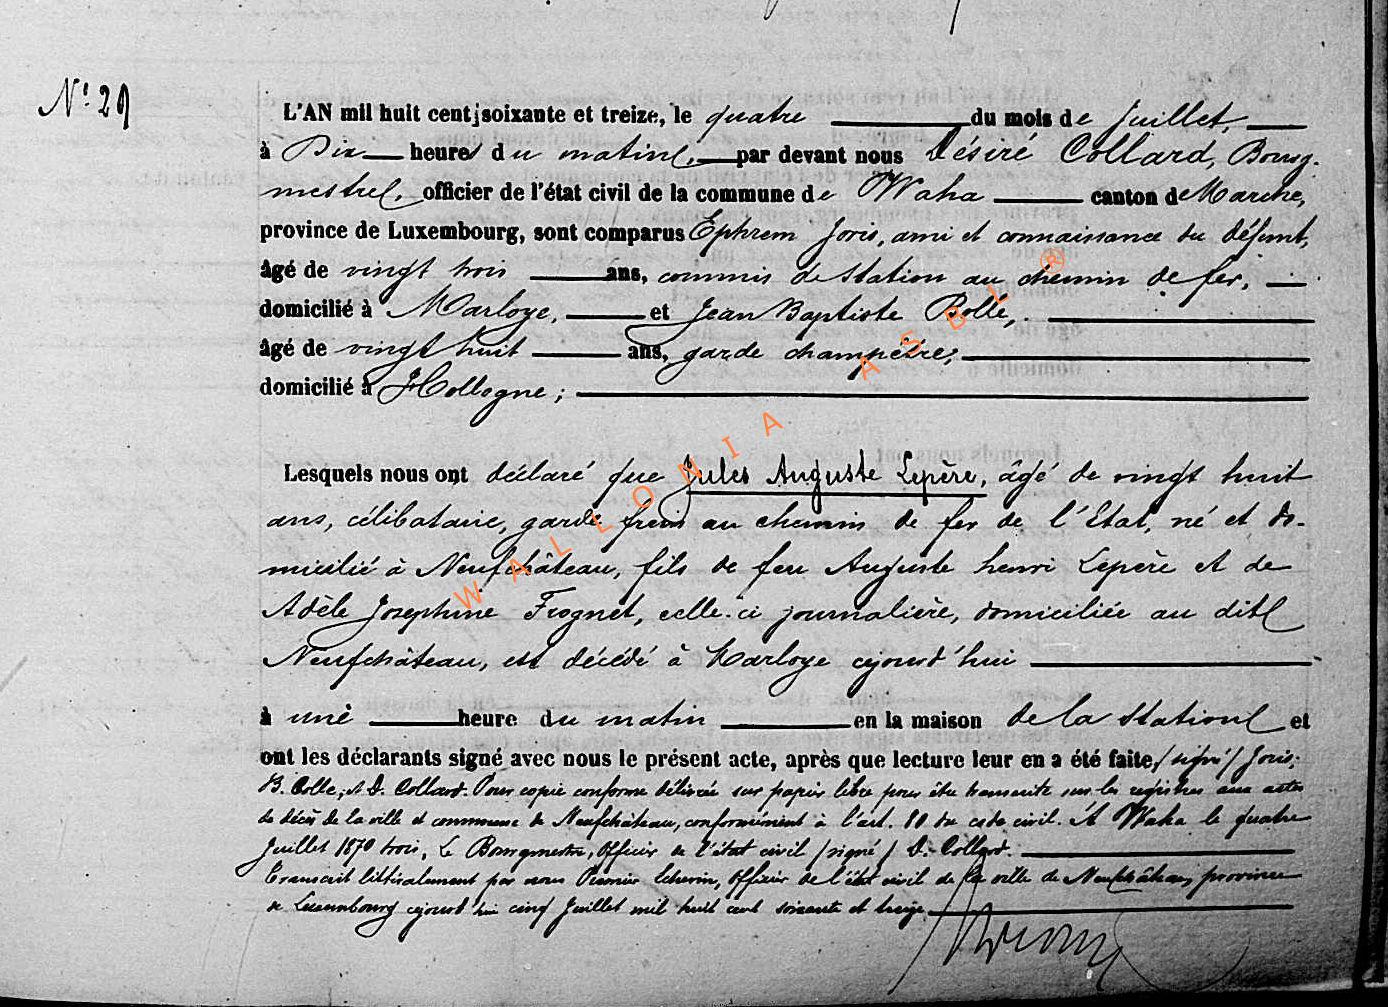 N° 29
L'AN mil huit cent soixante et treize, le quatre du mois de Juillet,
à Dix heures du matin, par devant nous Désiré Collard, Bourg-
mestre, officier de l'état civil de la commune de Waha canton de Marche,
province de Luxembourg, sont comparus Ephrem Joris, ami et connaissance du défunt,
âgé de vingt trois ans, commis de station au chemin de fer,
domicilié à Marloye, et Jean Baptiste Bolle,
âgé de vingt huit ans, garde champêtre,
domicilié à Hollogne ;
Lesquels nous ont déclaré que Jules Auguste Lepère, âgé de vingt huit
ans, célibataire, garde frein au chemin de fer de l'Etat, né et do-
micilié à Neufchâteau, fils de feu Auguste henri Lepère et de
Adèle Josephine Frognet, celle-ci journalière, domiciliée au dit
Neufchâteau, est décédé à Marloye cejourd'hui
à une heure du matin en la maison de la station et
ont les déclarants signé avec nous le présent acte, après que lecture leur en a été faite, (signé) Joris,
B. Bolle, et D. Collard. Pour copie conforme délivrée sur papier libre pour être transcrite sur les registres aux actes
de décès de la ville et commune de Neufchâteau, conformément à l'art. 80 du code civil. A Waha le quatre
Juillet 1870 trois, Le Bourgmestre, officier de l'état civil (signé) D. Collard.
Transcrit littéralement par nous Premier Echevin, officier de l'état civil de la ville de Neufchâteau, province
de Luxembourg cejourd'hui cinq Juillet mil huit cent soixante et treize
WALLONIA ASBL ®